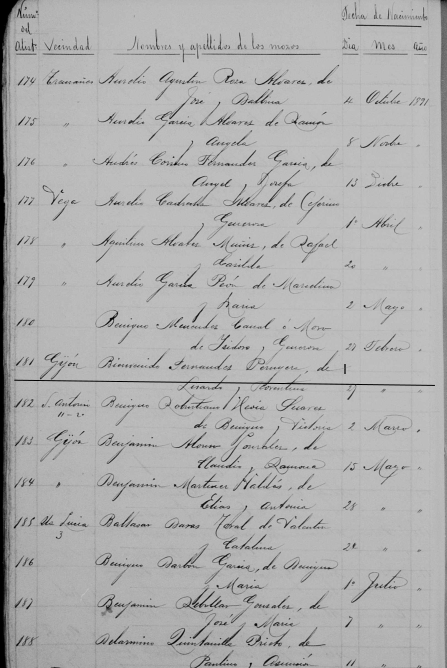 Núm. del Alist. Vecindad Nombres y apellidos de los mozos Fecha de Nacimiento
Día Mes Año
174 Aurelio Agustin Rosa Alvarez, de
José y Balbina 4 Octubre 1891
175 " Aurelio Garcia Alvarez de Ramón
y Angela 8 Novbre "
176 " Andrés Fernandez Garcia, de
Angel y Josefa 13 "
177 Vega Aurelio Alvarez, de Ceferino
y Generosa 1º Abril "
178 " Alvarez Muñiz, de Rafael
y Casilda 20 " "
179 " Aurelio Garcia Peón de Marcelino
y Maria 2 Mayo "
180 Benigno Menendez Canal o Moro
de Isidoro y Generosa 27 Febrero "
181 Gijón Bienvenido Fernandez de
y Florentina 27 " "
182 S. Antonio Benigno Hevia Suarez
11-2º de Benigno y Victoria 2 Marzo "
183 Gijón Benjamin Alonso Gonzalez, de
Claudio y Ramona 15 Mayo "
184 " Benjamin Martinez Valdés, de
Elias y Antonia 28 " "
185 Sta Lucia Baltasar de Valentin
3 y Catalina 22 " "
186 Benigno Barbon Garcia, de Benigno
y Maria 1º Julio "
187 Benjamin Gonzalez, de
José y Maria 7 " "
188 Belarmino Quintanilla Prieto, de
Paulino y Asensia 11 " "